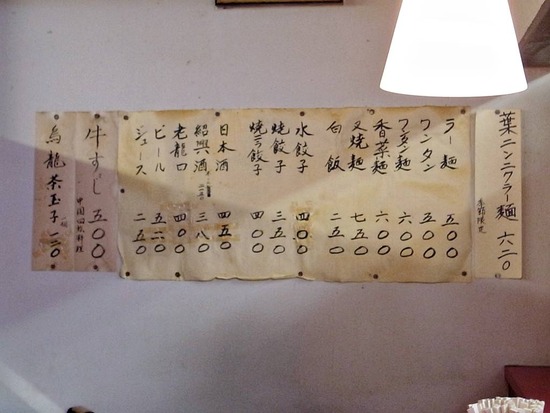 葉ニンニクラー麺 六二〇
季節限定
ラー麺 五〇〇
ワンタン 五〇〇
ワンタン麺 六〇〇
香菜麺 六〇〇
叉焼麺 七五〇
白飯 二五〇
水餃子 四〇〇
焼餃子 三五〇
焼ニラ餃子 四〇〇
日本酒 四五〇
紹興酒 三八〇
老龍口 四〇〇
ビール 五二〇
ジュース 二五〇
牛すじ 五〇〇
中国回族料理
烏龍茶玉子 一個 一二〇